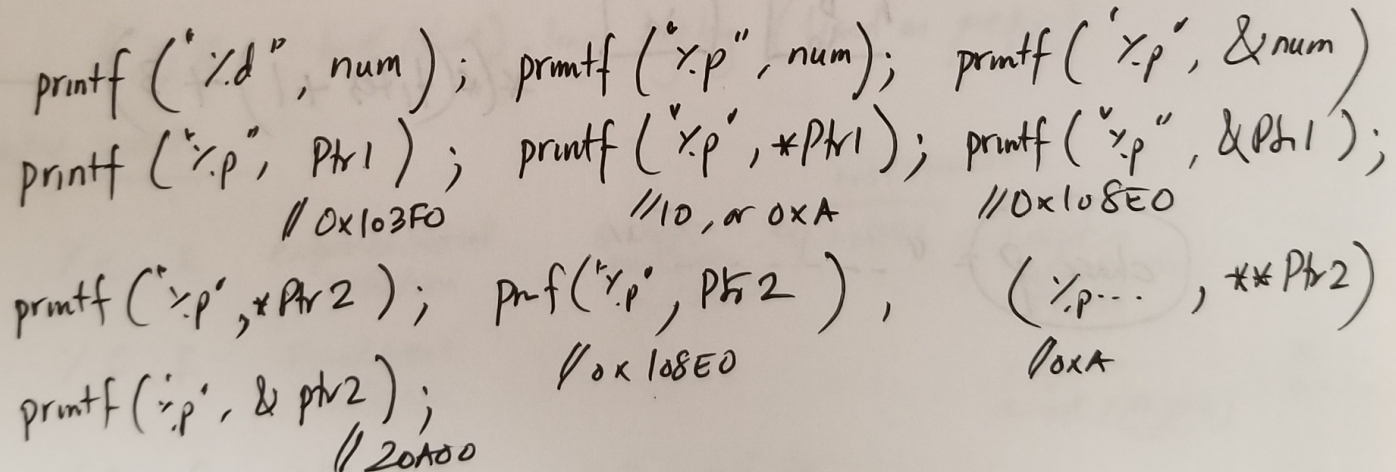 printf ("%d", num); printf ("%p", num); printf ("%p", &num)
printf ("%p", Ptr1); printf ("%p", *Ptr1); printf ("%p", &Ptr1);
//0x103F0 //10, or 0xA //0x108E0
printf ("%p", *Ptr2); prnf("%p", Ptr2), (%p... , **Ptr2)
//0x108E0 //0xA
printf ("%p", & ptr2);
//20A00